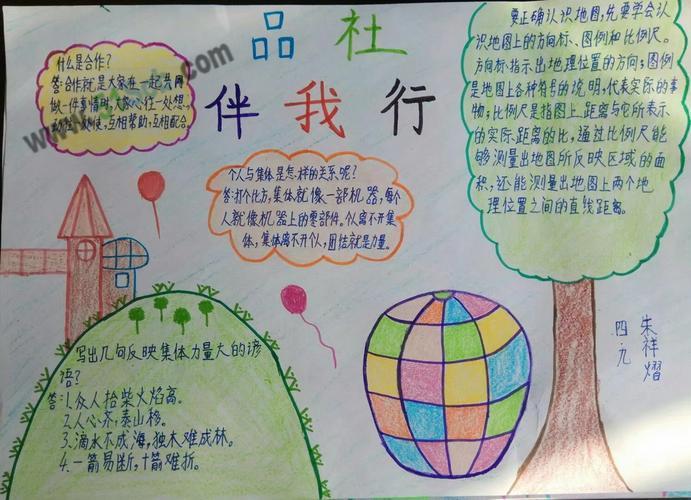 品 社
伴 我 行
什么是合作?
答:合作就是大家在一起共同
做一件事情时,大家心往一处想,
使,互相帮助,互相配合
个人与集体是怎样的关系呢?
答:打个比方,集体就像一部机器,每个
人就像机器上的零部件。个人离不开集
体,集体离不开个人,团结就是力量。
要正确认识地图,先要学会认
识地图上的方向标、图例和比例尺。
方向标指示出地理位置的方向;图例
是地图上各种符号的说明,代表实际的事
物;比例尺是指图上距离与它所表示
的实际距离的比,通过比例尺能
够测量出地图所反映区域的面
积,还能测量出地图上两个地
理位置之间的直线距离。
写出几句反映集体力量大的谚
语?
答:1.众人拾柴火焰高。
2.人心齐,泰山移。
3.滴水不成海,独木难成林。
4.一箭易断,十箭难折。
四
朱祥熠
www.